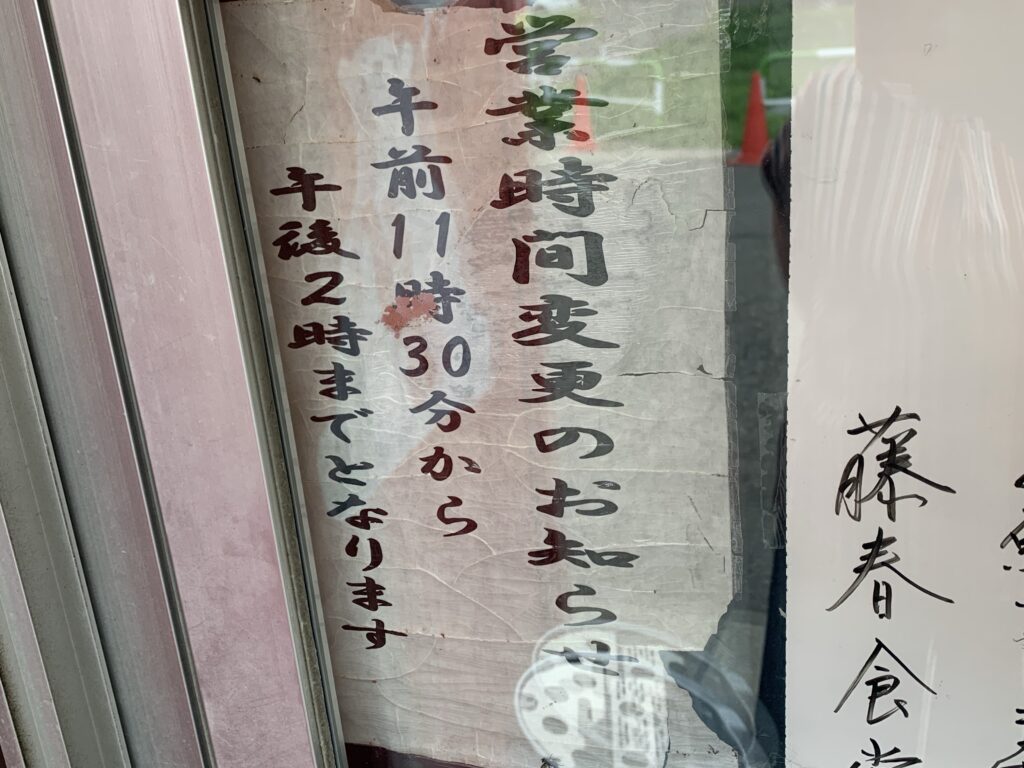 営業時間変更のお知らせ
午前11時30分から
午後2時までとなります
藤春食堂